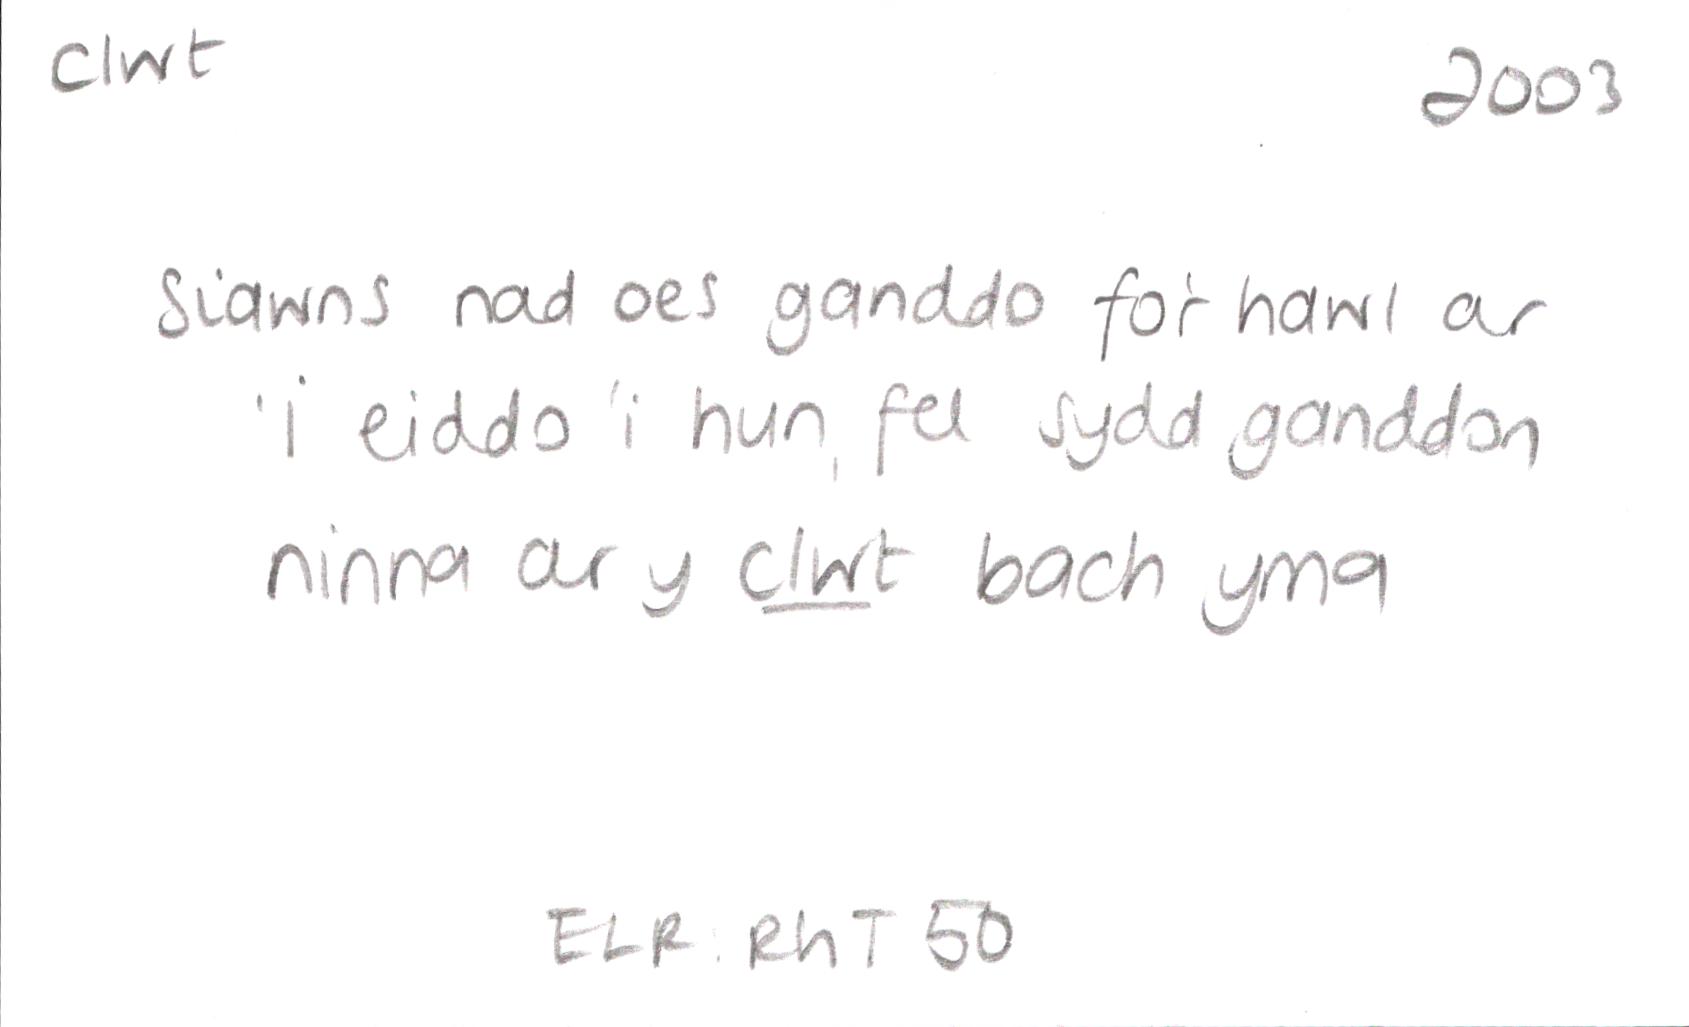 clwt 2003
Siawns nad oes ganddo fo'r hawl ar
'i eiddo 'i hun, fel sydd ganddon
ninna ar y clwt bach yma
ELR: RhT 50